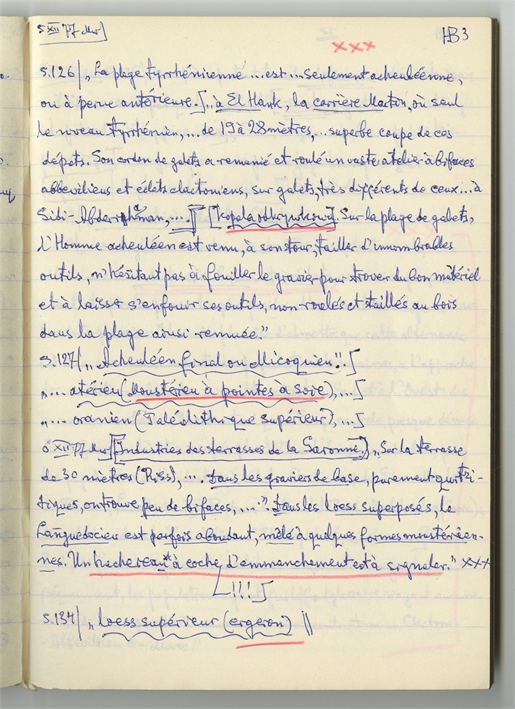 5 XII 77 Mur] HB3
xxx
S.126/ „La plage tyrrhénienne ...est...seulement acheuléenne,
ou à peine antérieure.]„ à El Hank, la carrière Martin, où seul
le niveau tyrrhénien,... de 19 à 28 mètres,... superbe coupe de ces
dépots. Son cordon de galets a remanié et roulé un vaste atelier à bifaces
abbevilliens et éclats clactoniens, sur galets, très différents de ceux...à
Sidi-Abderrahman, ...] [kopala odkrywkowa]. Sur la plage de galets,
L'Homme acheuléen est venu, à son tour, tailler d'innombrables
outils, n'hésitant pas à fouiller le gravier pour trouver du bon matériel
et à laisser s'enfouir ses outils, non-roulés et taillés au bois
dans la plage ainsi remuée."
S.127/ „Acheuléen final ou Micoquien"...]
„... atérien (Moustérien à pointes à soie), ...]
„... oranien (Paléolithique supérieur), ...]
6 XII 77 Mur [Industries des terrasses de la Garonne.] „Sur la terrasse
de 30 mètres (Riss), ... dans les graviers de base, purement quartzi-
tiques, on trouve peu de bifaces, ...". Dans les loess superposés, le
Languedocien est parfois abondant, mêlé à quelques formes moustérien-
nes. Un hachereau à coche d'emmanchement est à signaler." xxx
[!!!]
S.134/ „Loess supérieur (ergeron) //